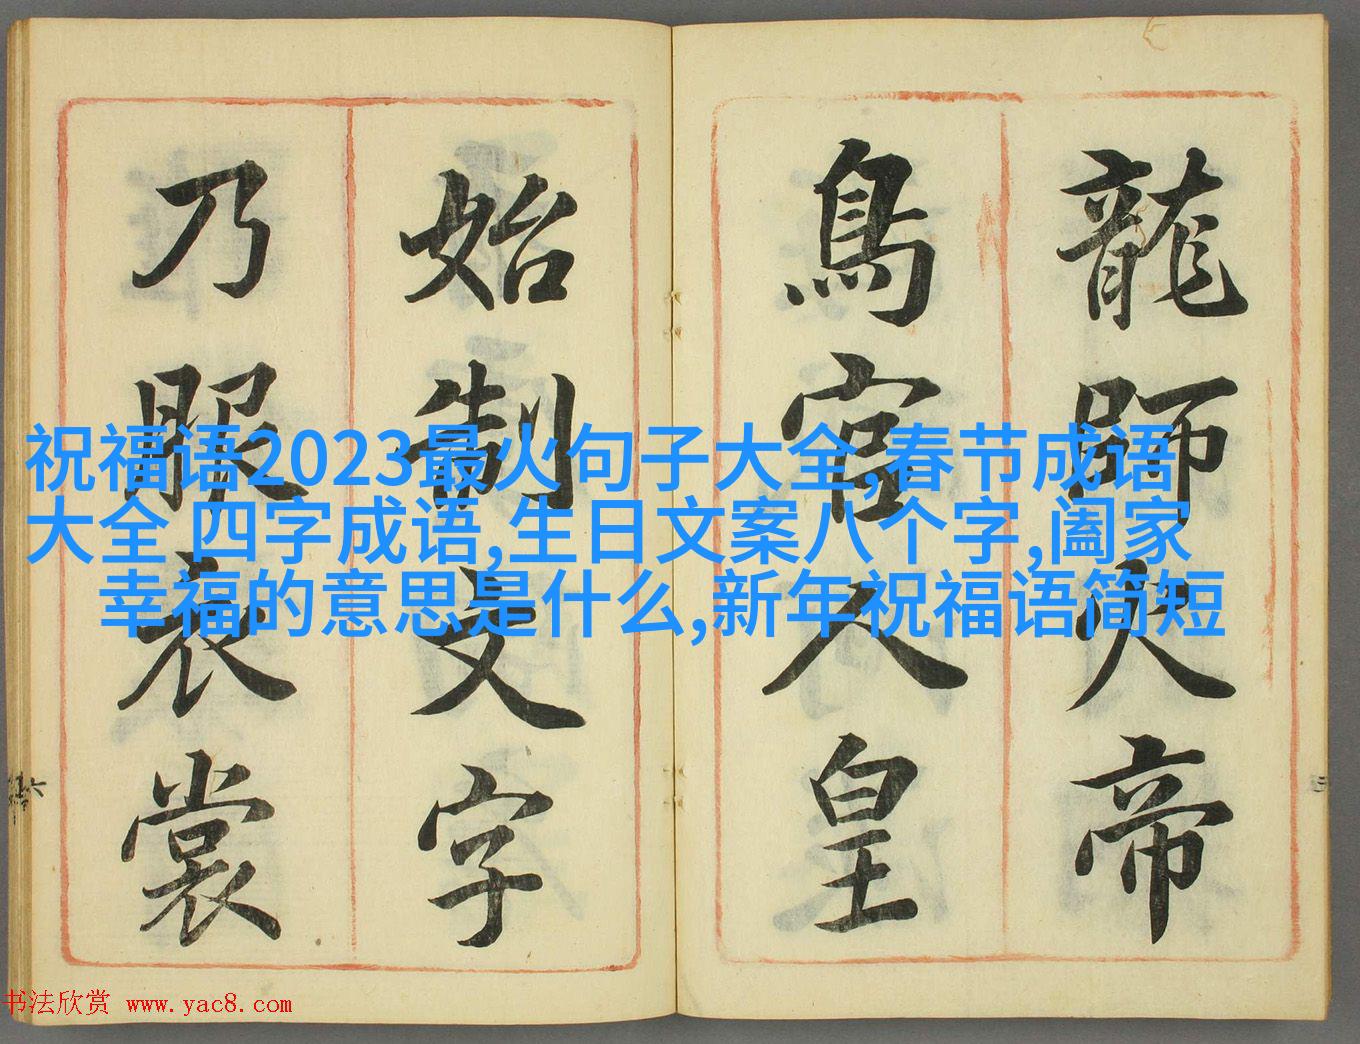 龍師火帝
鳥官人皇
始制文字
乃服衣裳
祝福语2023最火句子大全,春节成语
大全 四字成语,生日文案八个字,阖家
幸福的意思是什么,新年祝福语简短
书法欣赏 www.yac8.com